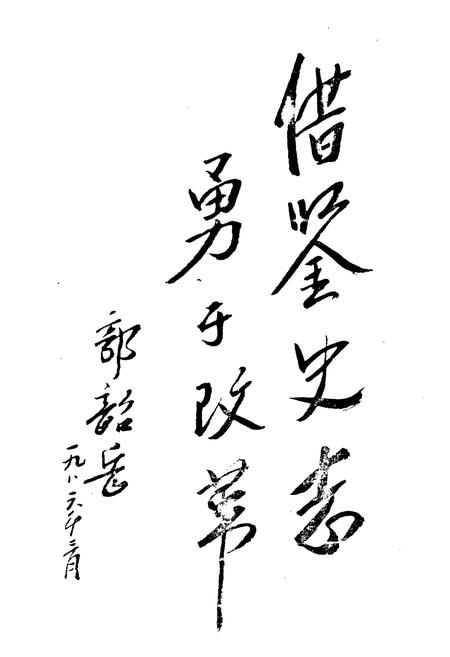 借鉴史志
勇于改革
韶岳
一九八六年三月